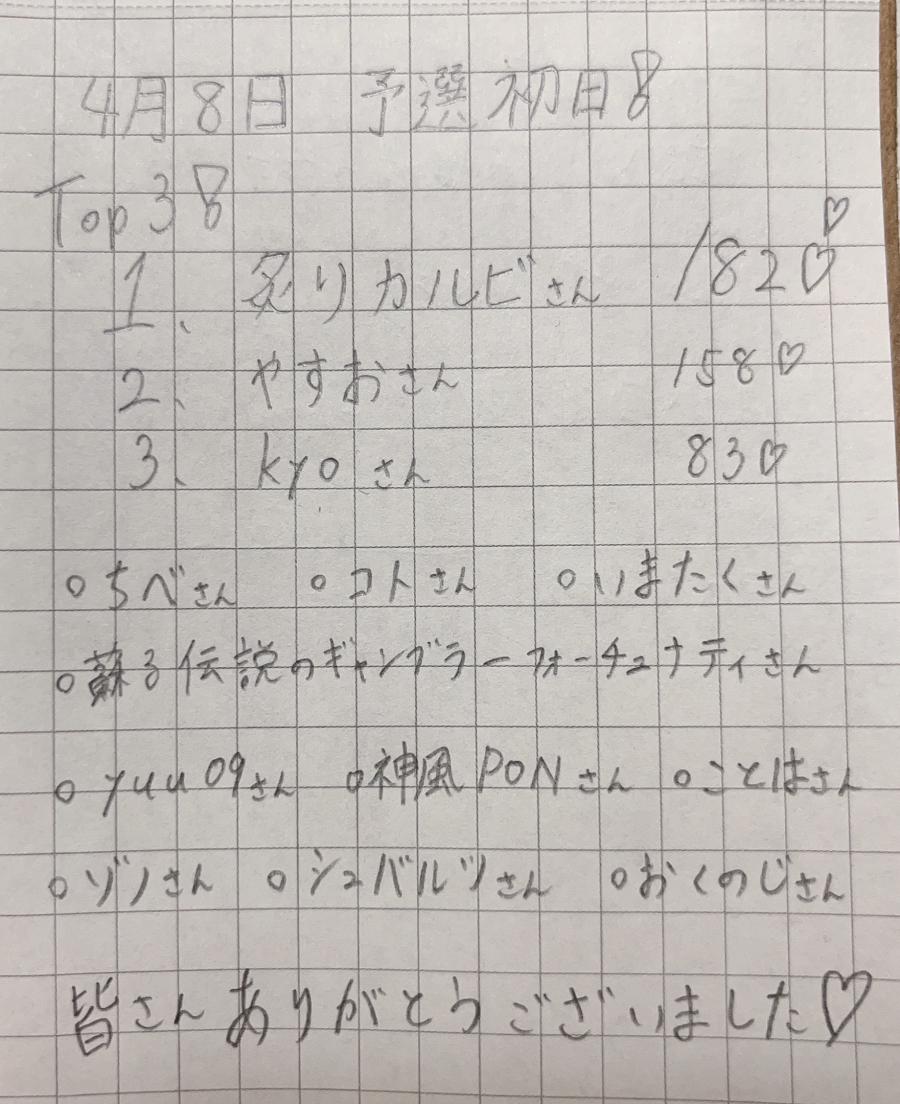 4月8日 予選初日8
Top38
1. 炙りカルビさん 1820♡
2. やすおさん 158♡
3. kyoさん 83♡
○ちべさん ○コトさん ○いまたくさん
○蘇る伝説のギャンブラーフォーチュナティさん
○yuu09さん ○神風PONさん ○ことはさん
○ゾノさん ○シュバルツさん ○おくのじさん
皆さんありがとうございました♡